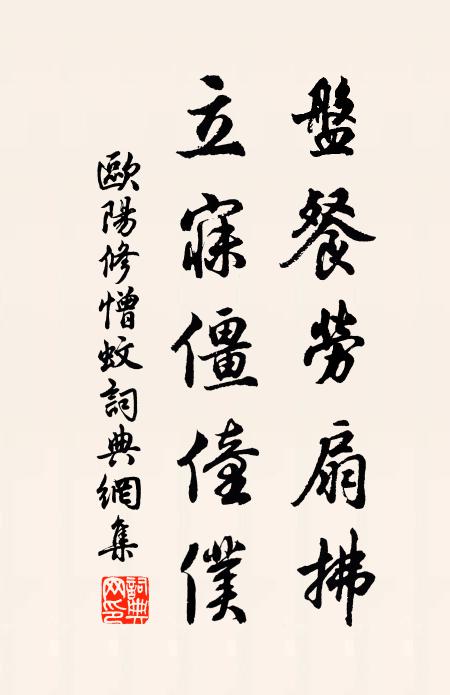 盤餐勞扇拂
立寐僵僮僕
歐陽修憎蚊詞典網集
詞典网印